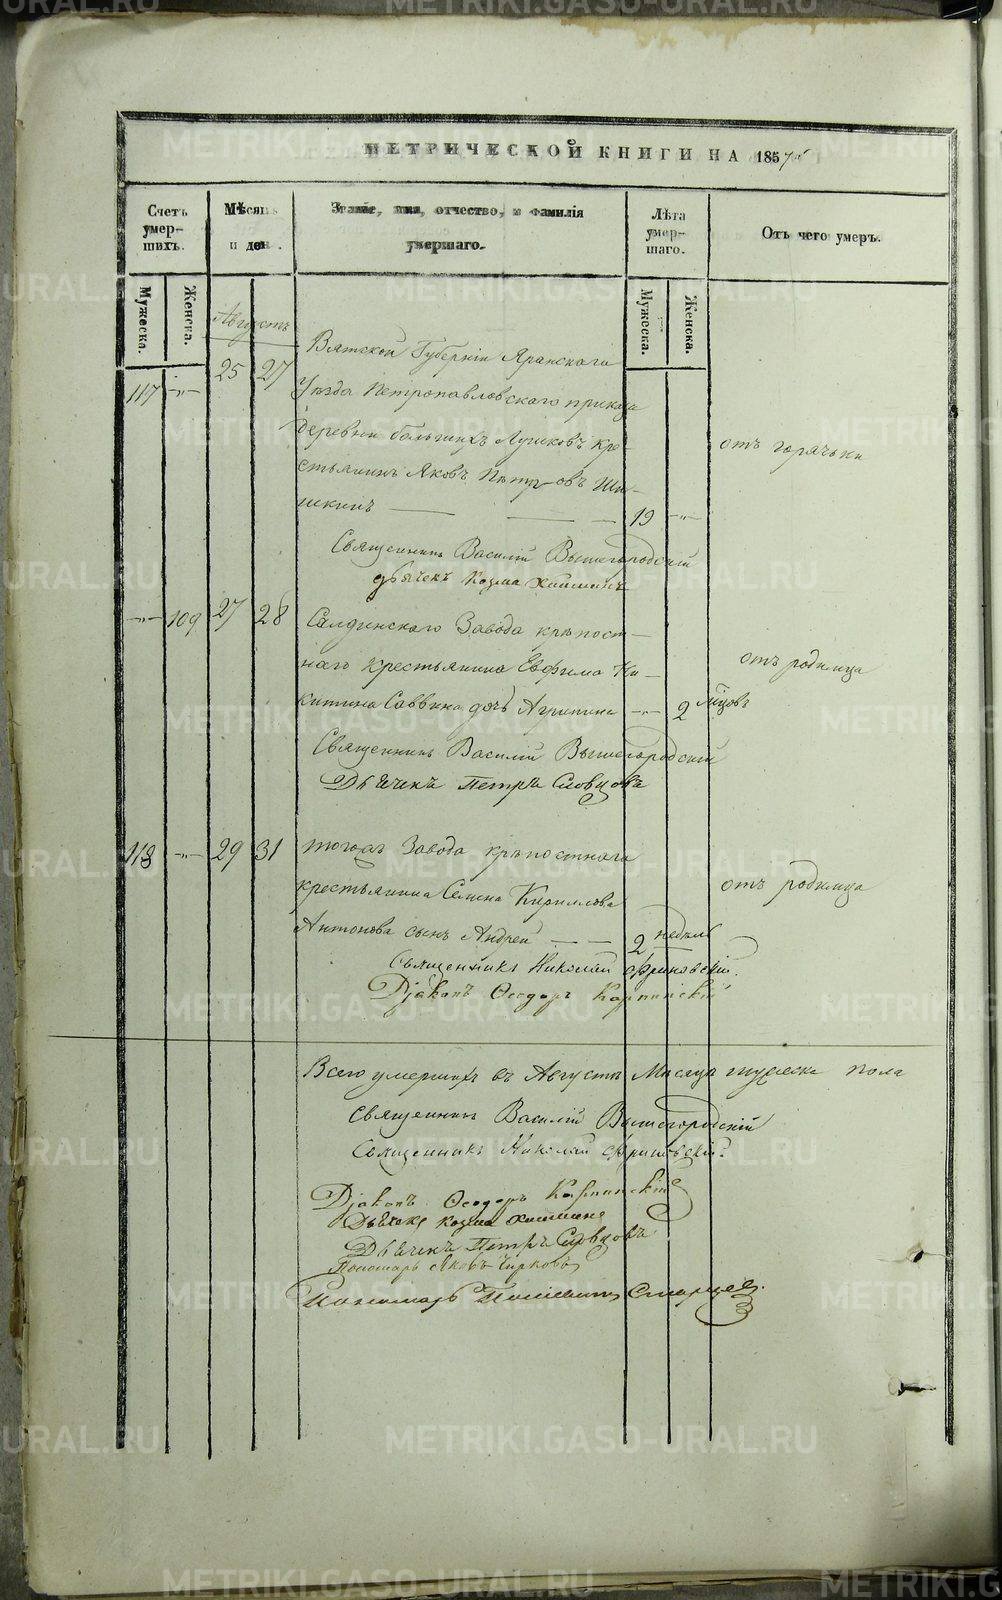 МЕТРИЧЕСКОЙ КНИГИ НА 1857й
Счетъ умер- шихъ.
Мѣсяцъ и день.
Званіе, имя, отчество, и фамилія умершаго.
Лѣта умер- шаго.
Отъ чего умеръ.
Мужеска.
Женска.
Мужеска.
Женска.
Августъ
25 27
117 -"-
Вятской Губерніи Яранскаго
Уѣзда Петропавловскаго приказа
деревни большихъ кре-
стьянинъ Яковъ Петровъ Ши-
шкинъ — 19 -"-
отъ горячьки
Священникъ Василій Вышегородскій
дьячекъ Козма
-"- 109 27 28
Салдинскаго Завода крѣпост-
наго крестьянина Евфима Ни-
китина Саввина дочь Агрипина -"- 2 мцовъ
отъ родимца
Священникъ Василій Вышегородскій
Дьячекъ Петръ Словцовъ
118 -"- 29 31
тогожъ Завода крѣпостнаго
крестьянина Семена Кириллова
Антонова сынъ Андрей — 2 недѣль
отъ родимца
Священникъ Николай Фриновскій.
Діаконъ Ѳеодоръ Карпинскій
Всего умершихъ въ Августѣ Мѣсяцѣ мужеска пола
Священникъ Василій Вышегородскій
Священникъ Николай Фриновскій.
Діаконъ Ѳеодоръ Карпинскій
Дьячекъ Козма
Дьячекъ Петръ Словцовъ
Пономарь Яковъ Чирковъ
Пономарь Старцев.
METRIKI.GASO-URAL.RU